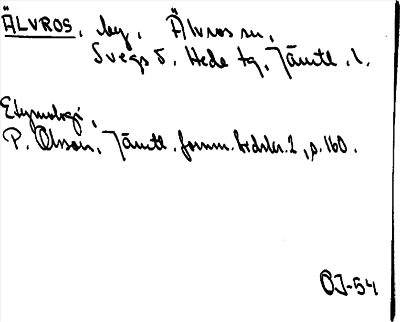 ÄLVROS, by, Älvros sn,
Svegs d, Hede tg, Jämtl. l.
Etymologi,
P. Olsson, Jämtl. fornm. tidskr. 2, s. 160.
OJ-54